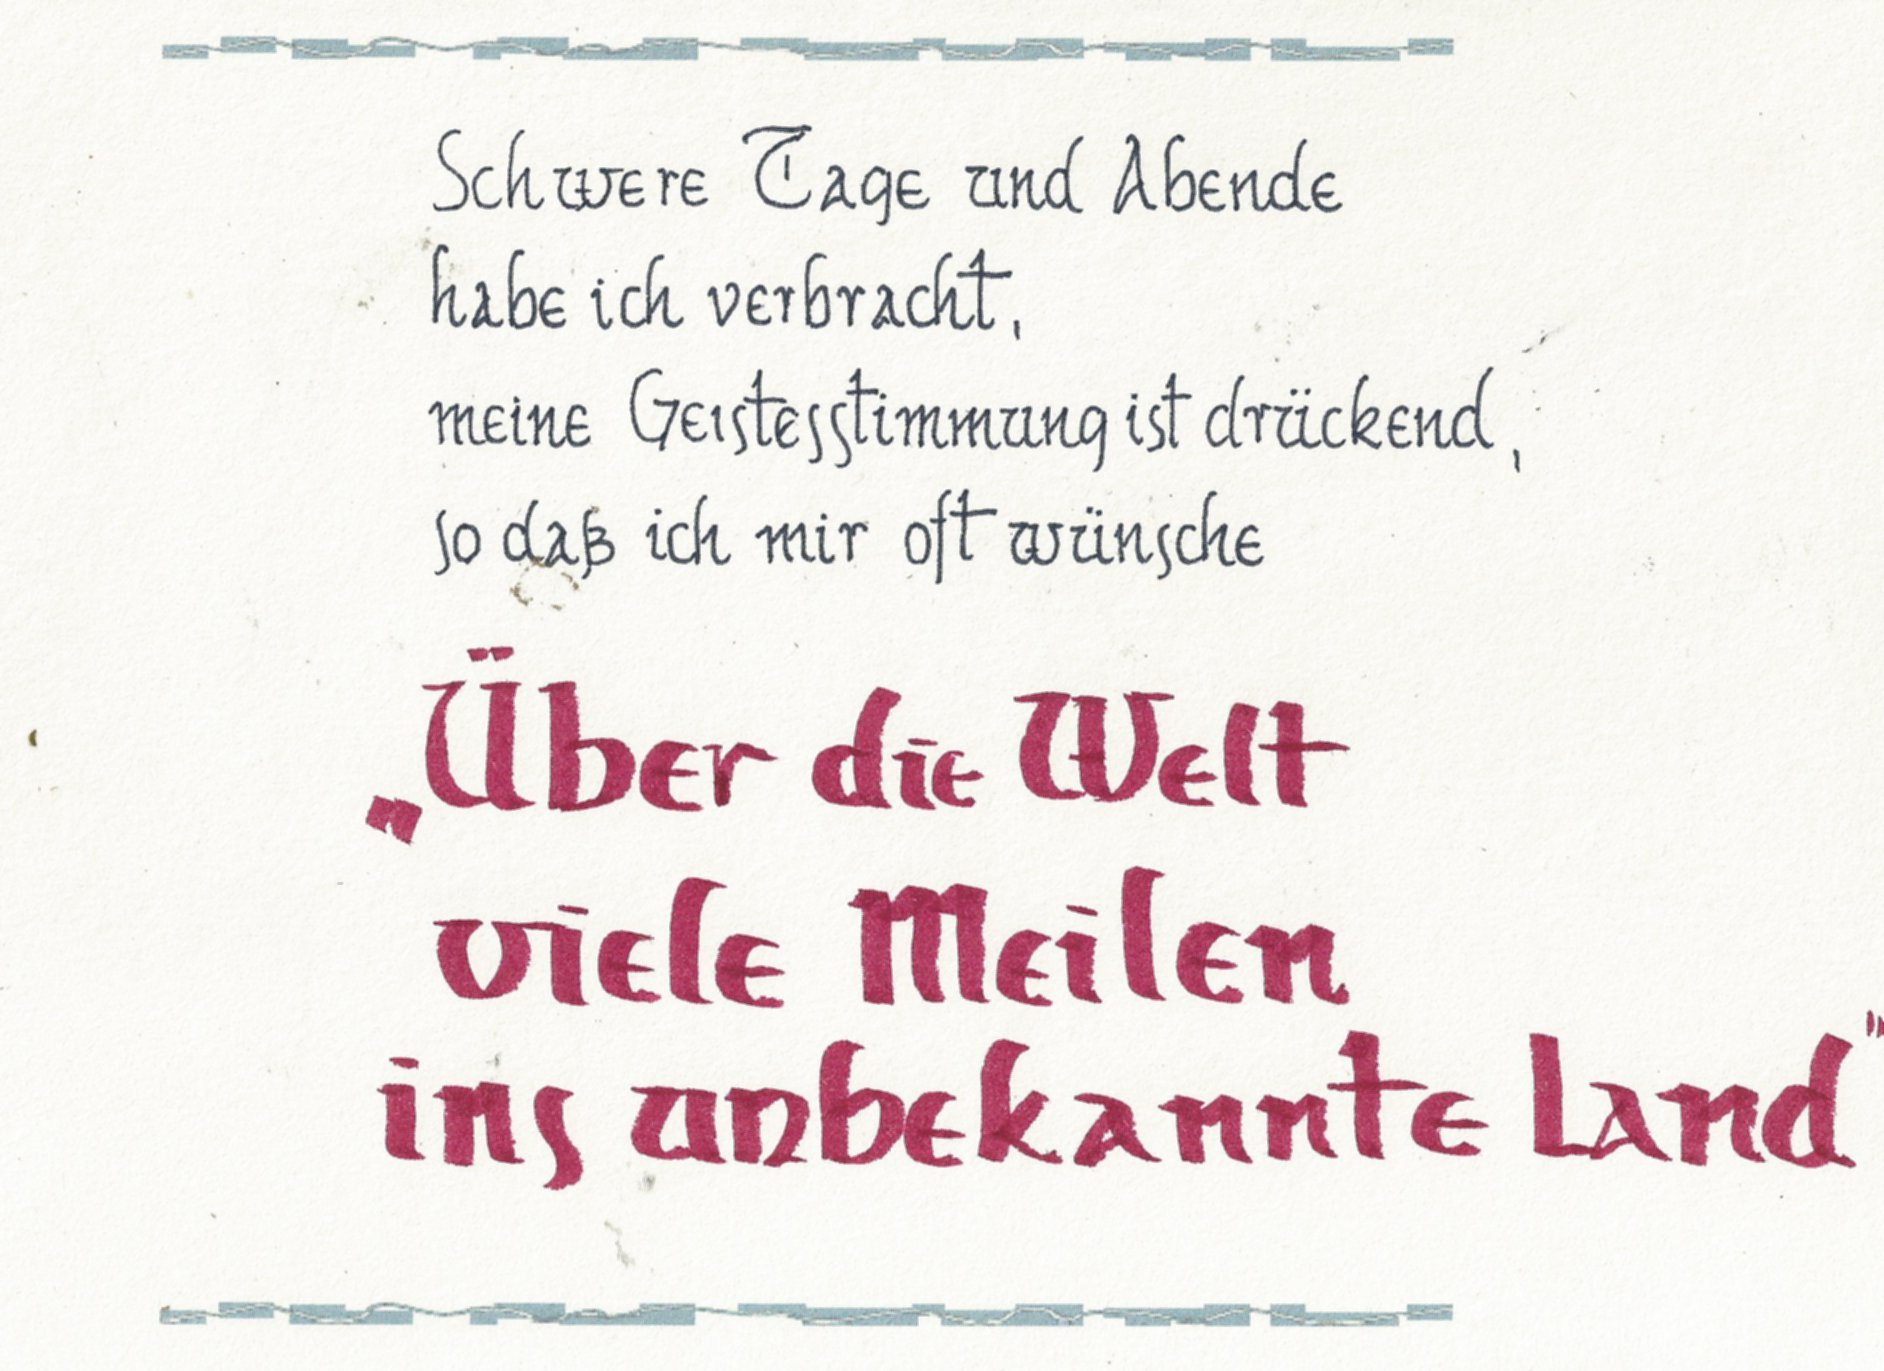 Schwere Tage und Abende
habe ich verbracht,
meine Geistesstimmung ist drückend,
so daß ich mir oft wünsche
„Über die Welt
viele Meilen
ins unbekannte Land"